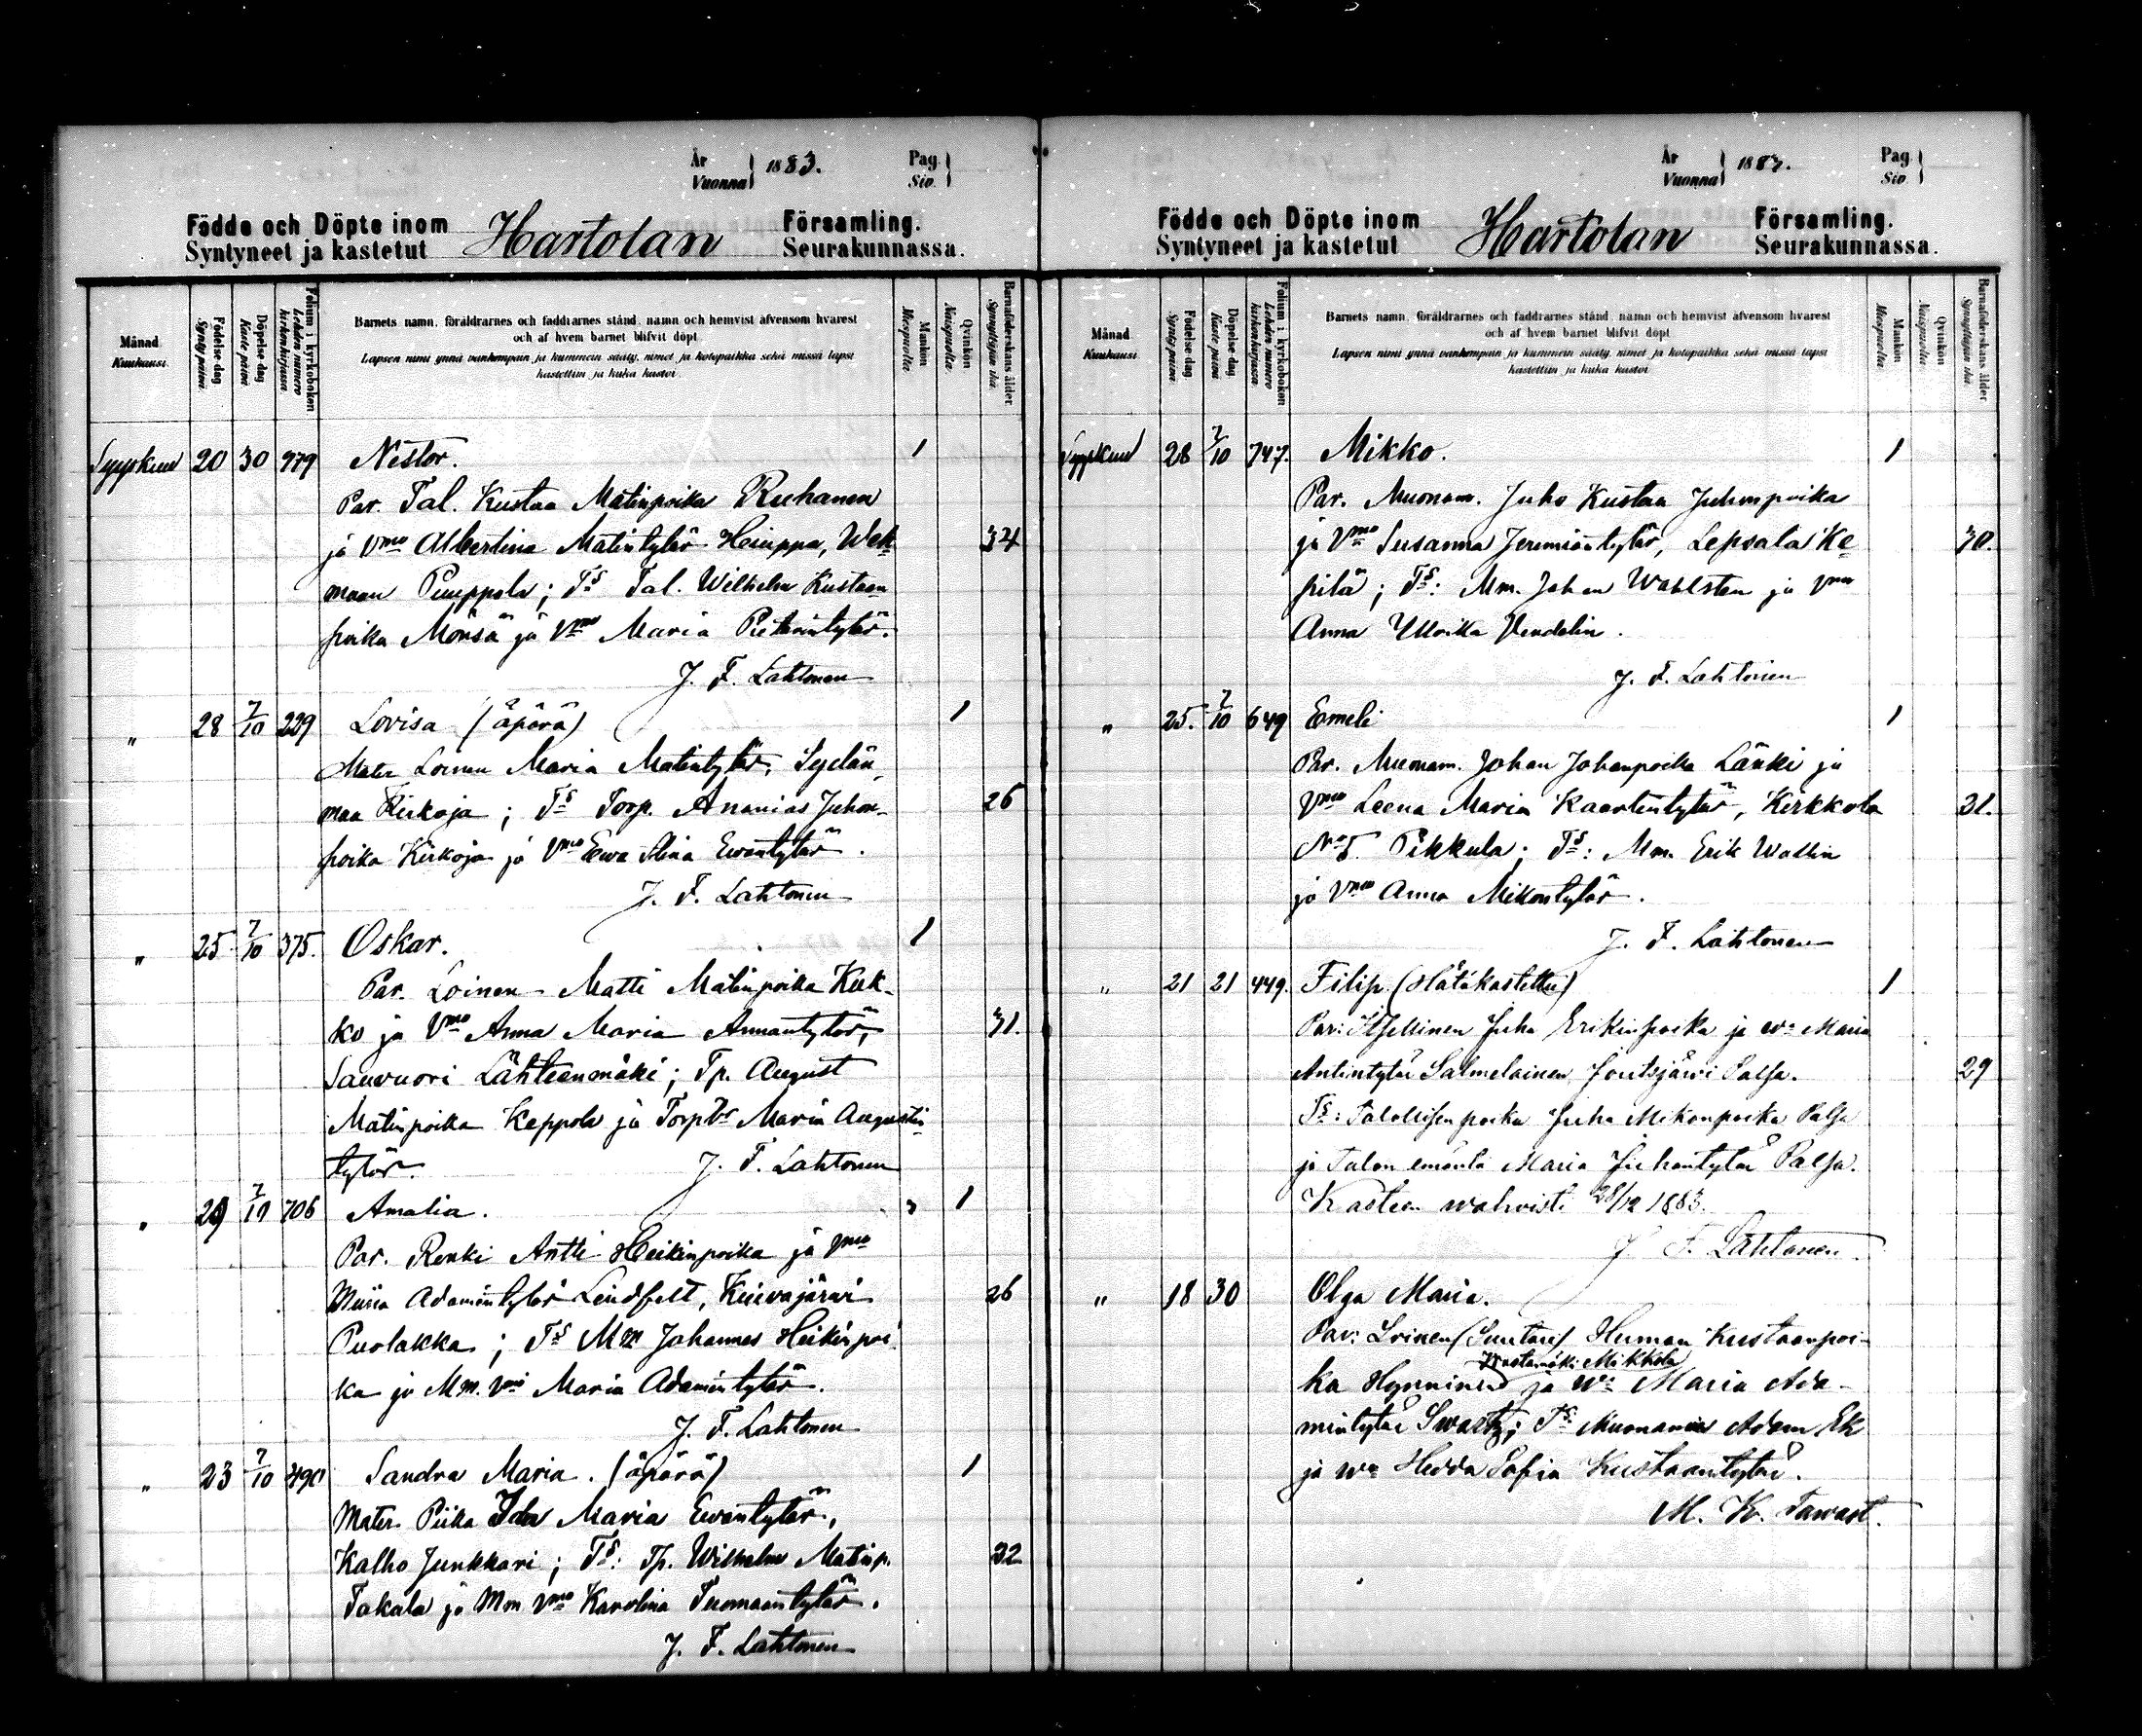 År
Vuonna 1883.
Pag.
Siv.
Födde och Döpte inom Hartolan Församling.
Syntyneet ja kastetut Seurakunnassa.
Månad
Kuukausi.
Födelsedag
Syntypäivä.
Döpelsedag
Kastepäivä
Folium i kyrkoboken
Lehden numero kirkonkirjassa
Barnets namn, föräldrarnes och faddrarnes stånd, namn och hemvist äfvensom hvarest
och af hvem barnet blifvit döpt.
Lapsen nimi ynnä vanhempain ja kummein sääty, nimet ja kotopaikka sekä missä lapsi
kastettiin ja kuka kastoi.
Mankön
Miespuolta
Qvinkön
Naispuolta
Barnaföderskans ålder
Synnyttäjän ikä.
Syyskuu 20 30 979 Nestor. 1
Par. Tal. Kustaa Matinpoika Ruhanen
ja Vmo Albertina Matintytär Heinppa, Wek- 34
maan Pumppola; T.s Tal. Wilhelm Kustaan
poika Mönsä ja Vmo Maria Pietarintytär.
J. F. Lahtonen
" 28 7/10 229 Lovisa (äpärä) 1
Mater Loinen Maria Matintytär, Sydän-
maa Kirkoja; T.s Torp. Ananias Juhon- 26
poika Kirkoja ja Vmo Ewa Stina Ewantytär.
J. F. Lahtonen
" 25 7/10 375. Oskar. 1
Par. Loinen Matti Matinpoika Kuk-
ko ja Vmo Anna Maria Annantytär, 31.
Sauvuori Lähteenmäki; Tp. August
Matinpoika Keppola ja Torp. Maria Augustin
tytär. J. F. Lahtonen
" 29 7/10 706 Amalia. 1
Par. Renki Antti Heikinpoika ja Vmo
Miina Adamintytär Lindfelt, Kuivajärvi 26
Puolakka; T.s Mm Johannes Heikinpoi
ka ja Mm. Vmo Maria Adamintytär.
J. F. Lahtonen
" 23 7/10 490 Sandra Maria. (äpärä) 1
Mater. Piika Ida Maria Ewantytär,
Kalho Junkkari; T.s: Tp. Wilhelm Matinp. 32
Takala ja Mm Vmo Karolina Tuomaantytär.
J. F. Lahtonen
År
Vuonna 1883.
Pag.
Siv.
Födde och Döpte inom Hartolan Församling.
Syntyneet ja kastetut Seurakunnassa.
Månad
Kuukausi.
Födelsedag
Syntypäivä.
Döpelsedag
Kastepäivä
Folium i kyrkoboken
Lehden numero kirkonkirjassa
Barnets namn, föräldrarnes och faddrarnes stånd, namn och hemvist äfvensom hvarest
och af hvem barnet blifvit döpt.
Lapsen nimi ynnä vanhempain ja kummein sääty, nimet ja kotopaikka sekä missä lapsi
kastettiin ja kuka kastoi.
Mankön
Miespuolta
Qvinkön
Naispuolta
Barnaföderskans ålder
Synnyttäjän ikä.
Syyskuu 28 7/10 747. Mikko. 1
Par. Muonam. Juho Kustaa Juhonpoika
ja Vmo Susanna Jeremiantytär, Lepsala Ke 30.
pilä; T.s: Mm. Johan Wahlsten ja Vmo
Anna Ullrika Vendelin.
J. F. Lahtonen
" 25. 7/10 649 Emeli 1
Par. Muonam. Johan Johanpoika Länki ja
Vmo Leena Maria Kaarlentytär, Kirkkola 31.
No 5. Pikkula; T.s: Mm. Erik Wallin
ja Vmo Anna Mikontytär.
J. F. Lahtonen
" 21 21 449. Filip (Hätäkastettu) 1
Par: Itsellinen Juha Erikinpoika ja w:o Maria
Antintytär Salmelainen Joutsjärvi Palsa. 29
T.s: Talollisenpoika Juha Mikonpoika Palsa
ja Talon emäntä Maria Juhantytär Palsa.
Kasteen wahvisti 28/12 1883.
J. F. Lahtonen.
" 18 30 Olga Maria.
Par: Loinen (Suutari) Herman Kustaanpoi-
Mikkola
ka Hynninen ja W:o Maria Ada-
mintytär Swartz; T.s Muonamies Adam Ek
ja W:o Hedda Sofia Kustaantytär.
M. K. Tawast.